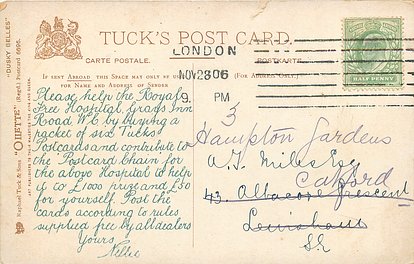 TUCK'S POST CARD.
CARTE POSTALE.
POSTKARTE.
LONDON
NOV 28 06
9. PM
IF SENT ABROAD THIS SPACE MAY ONLY BE
NAME AND ADDRESS OF SENDER
(FOR ADDRESS ONLY.)
HALF PENNY
"DUSKY BELLES"
"OILETTE" (Regd.) Postcard 6696.
Raphael Tuck & Sons
Please help the Royal
Free Hospital, Grays Inn
Road W.C by buying a
packet of six Tucks
Postcards and contribute to
the Postcard Chain for
the above Hospital to help
it to £1000 prize and £50
for yourself. Post the
cards according to rules
supplied free by all dealers
Yours
Nellie
3
Hampton Gardens
A.J. Miles Esq
Catford
43, Albacore Crescent
Lewisham
S.E